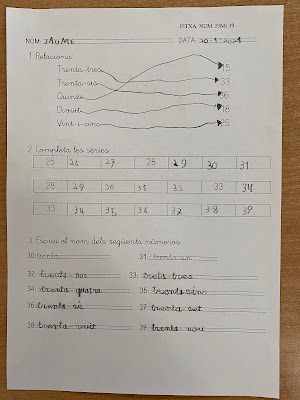 FITXA NUM. FINS 39
NOM: JAUME DATA: 20-1-2021
1. Relaciona:
Trenta-tres 15
Trenta-sis 33
Quinze 36
Divuit 18
Vint-i-cinc 25
2. Completa les sèries:
25 26 27 28 29 30 31
28 29 30 31 32 33 34
33 34 35 36 37 38 39
3. Escriu el nom dels següents números:
30: trenta 31: trenta-un
32: trenta-dos 33: treta-tres
34: trenta-quatra 35: trenta cinc
36: trenta-sis 37: trenta-set
38: trenta-vuit 39: trenta-nou